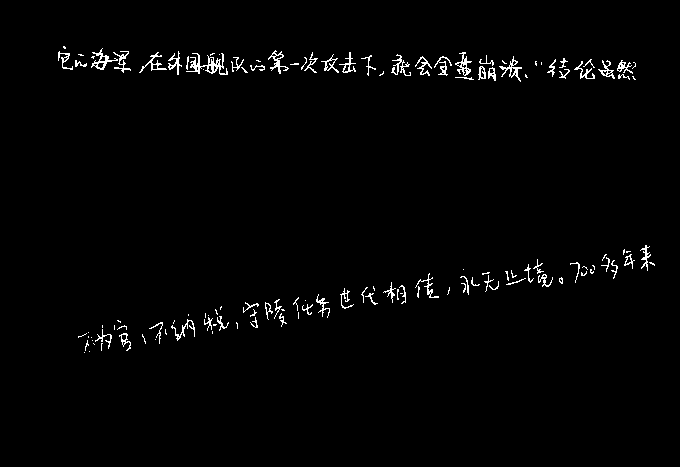 它的海军,在外国舰队的第一次攻击下,就会全盘崩溃.”结论虽然
不为官、不纳税,守陵任务世代相传,永无止境。700多年来